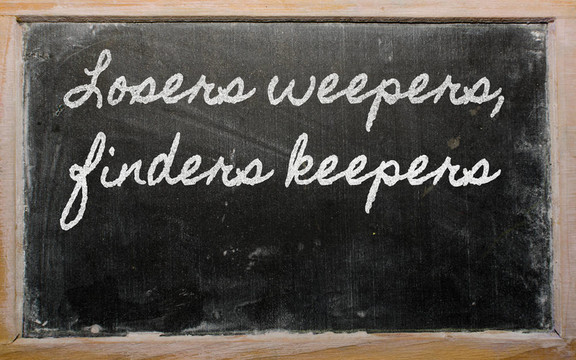 Losers weepers,
finders keepers